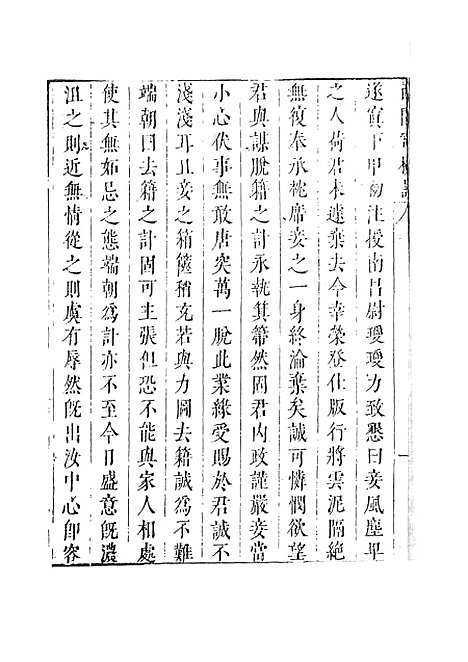 遂寘下甲勑注授南昌尉瓊瓊力致懇曰妾風塵卑
之人荷君未遽棄去今幸榮登仕版行將雲泥隔絶
無復奉承枕席妾之一身終淪棄矣誠可憐憫欲望
君與謀脫籍之計永執箕箒然固君内政謹嚴妾當
小心伏事無敢唐突萬一脫此業緣受賜於君誠不
淺淺耳且妾之箱篋稍充若與力圖去籍誠爲不難
端朝曰去籍之計固可主張但恐不能與家人相處
使其無妬忌之態端朝爲計亦不至今日盛意旣濃
沮之則近無情從之則虞有辱然旣出汝中心卽容